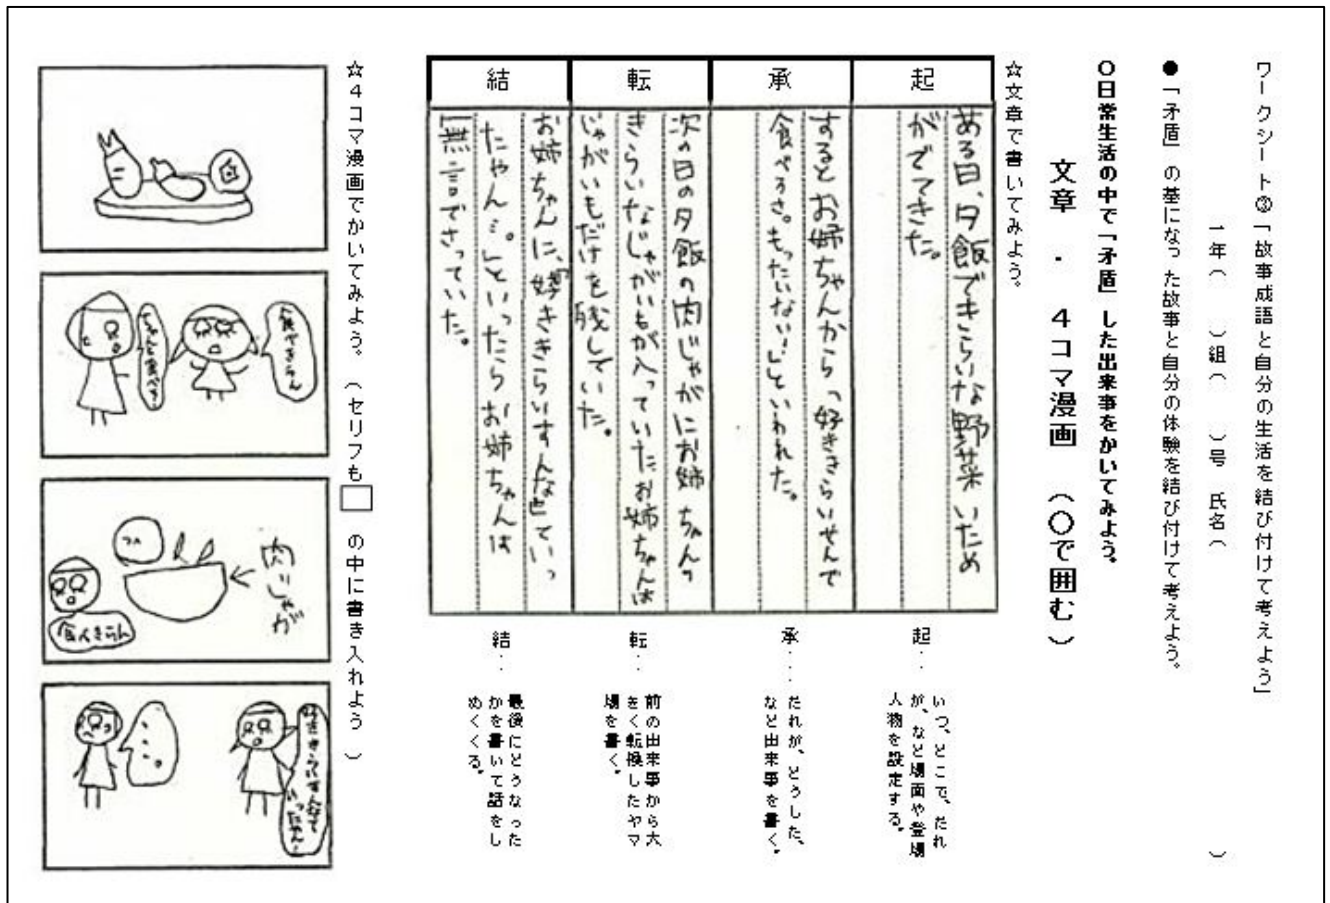 ワークシート③「故事成語と自分の生活を結び付けて考えよう」
１年（　　）組（　　）号　氏名（　　　　）
●「矛盾」の基になった故事と自分の体験を結び付けて考えよう。
○日常生活の中で「矛盾」した出来事をかいてみよう。
文章　・　４コマ漫画　（○で囲む）
☆文章で書いてみよう。
起
ある日、夕飯できらいな野菜いため
がでてきた。
承
するとお姉ちゃんから「好ききらいせんで
食べろさ。もったいない！」といわれた。
転
次の日の夕飯の肉じゃがにお姉ちゃんの
きらいなじゃがいもが入っていたお姉ちゃんは
じゃがいもだけを残していた。
結
お姉ちゃんに、「好ききらいすんなていっ
たやん…。」といったらお姉ちゃんは
無言でさっていた。
起‥
いつ、どこで、だれ
が、など場面や登場
人物を設定する。
承‥
だれが、どうした、
など出来事を書く。
転‥
前の出来事から大
きく転換したヤマ
場を書く。
結‥
最後にどうなった
かを書いて話をし
めくくる。
☆４コマ漫画でかいてみよう。（セリフも□の中に書き入れよう）
ちゃんと食べろ
肉じゃが
・・・。
好ききらいすんなて
いったやん！